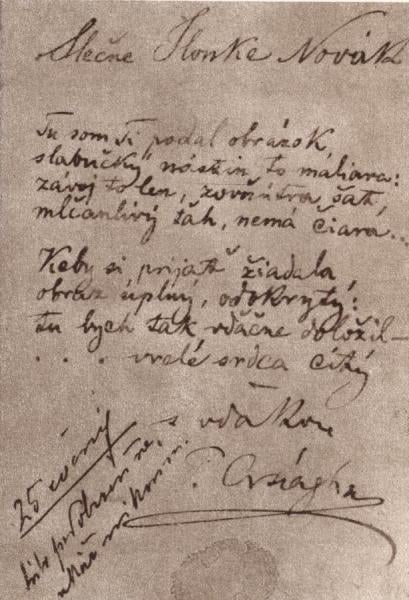 Slečne Ilonke Novák
Tu som Ti podal obrázok,
slabučký nástin to maliara:
závoj to len, zovňútra šatť,
mlčanlivý ťah, nemá čiara...
Keby si prijatť žiadala,
obraz úplný, odokrytý:
tu bych tak vďačne doložil—
. . . vrelé srdca city
s vďakou
P. Országh
25 ročný